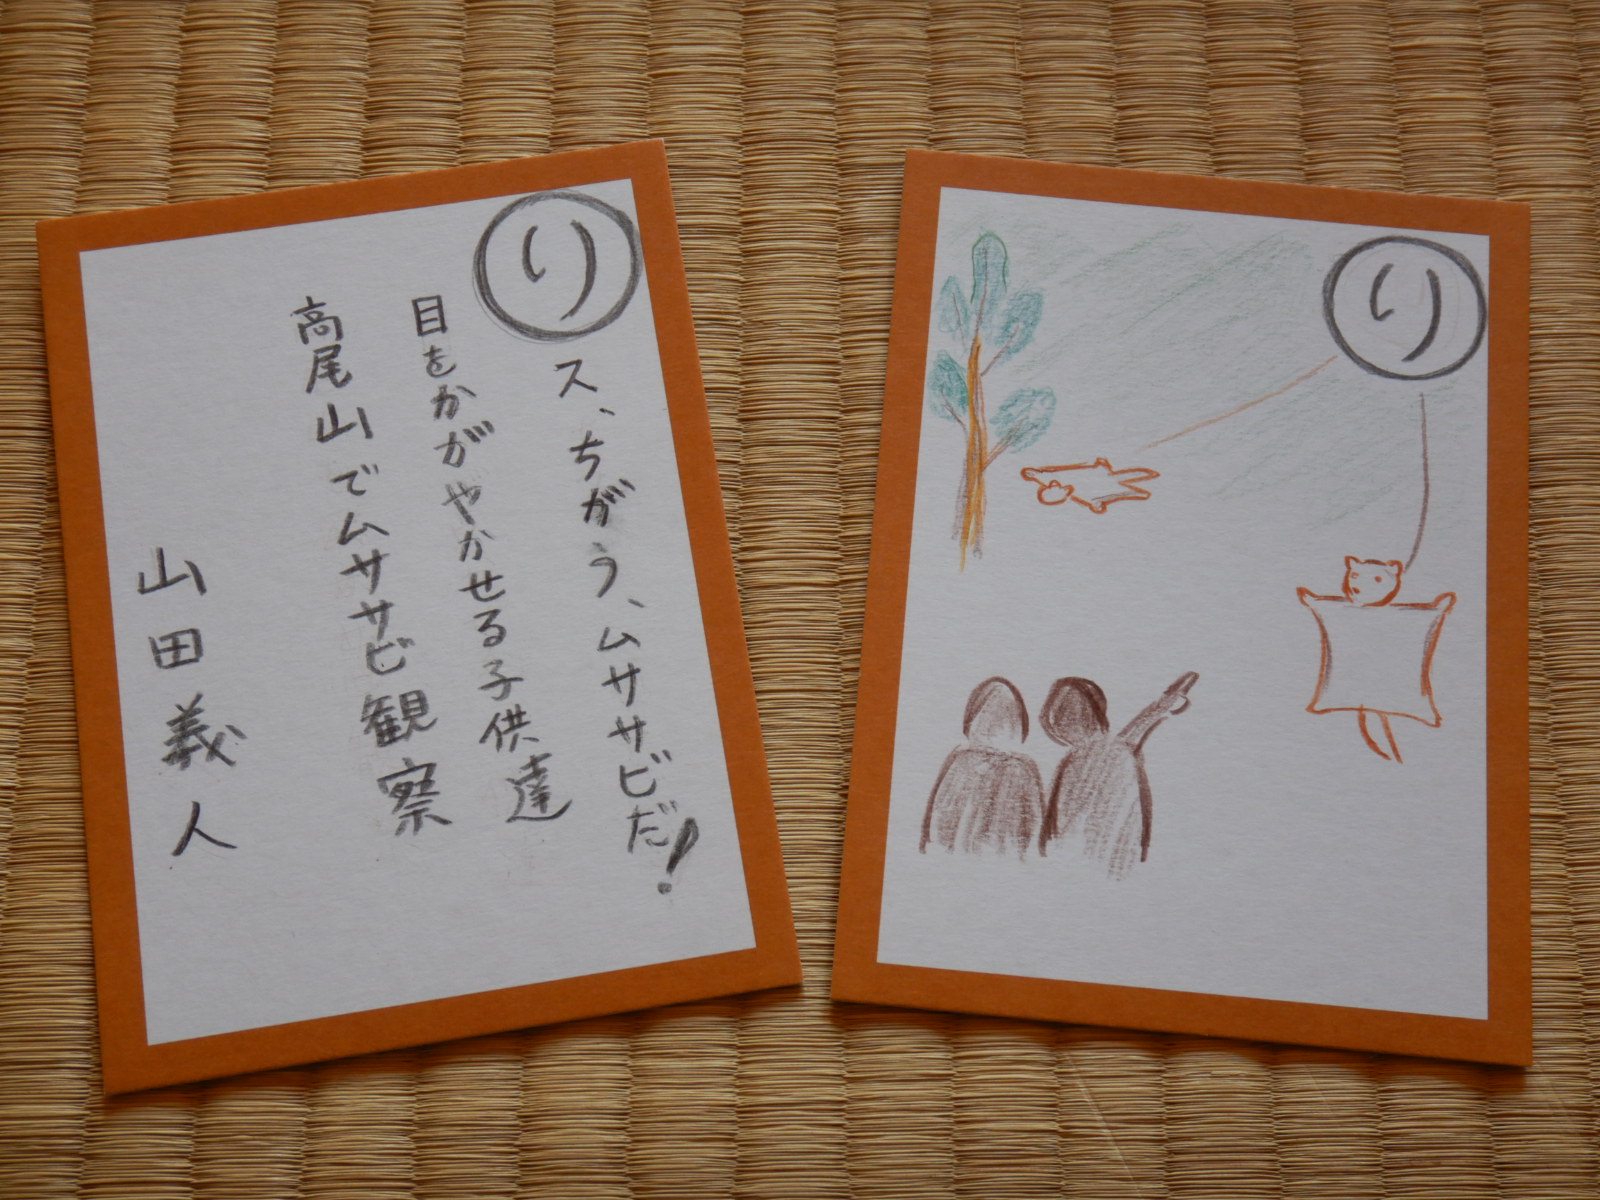 り
ス、ちがう、ムササビだ!
目をかがやかせる子供達
高尾山でムササビ観察
山田義人
り